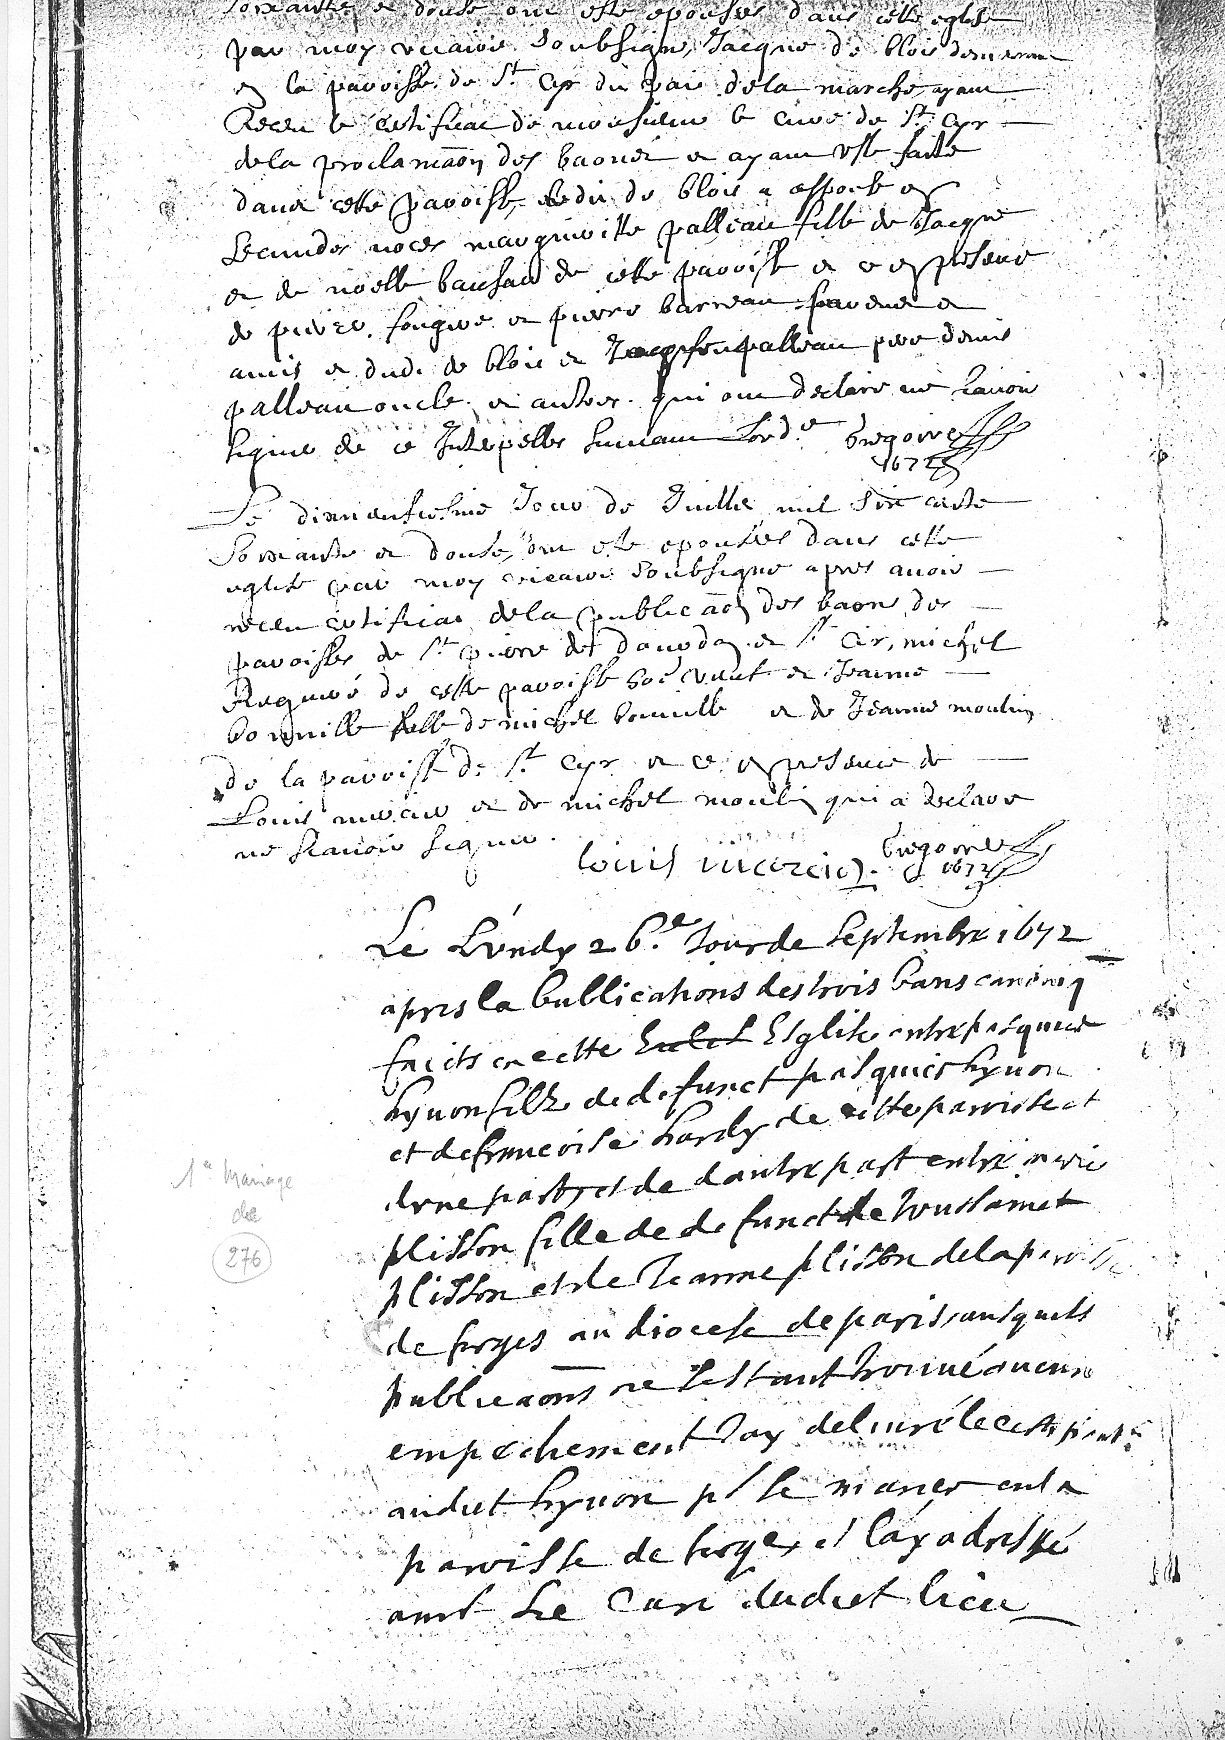 soixante et douse ont esté epousés dans cette eglise
par moy vicaire soubsigné, Jacque de blois demeurant
en la paroisse de St Cyr du pais de la marche, ayant
Receu le certificat de monsieur le curé de St Cyr
de la proclamaōn des bans et ayant esté faite
dans cette paroisse, ledit de blois a espousé en
secondes noces margueritte palleau fille de Jacque
et de noelle de cette paroisse et ce en presence
de pierre et pierre barreau parens et
amis et dud. de blois et palleau pere denis
palleau oncle et autres qui ont declaré ne scavoir
signer de ce Interpellés suivant lord.e Gregoire
1672
Le disneufiesme Jour de Juillet mil six cents
soixante et douse, ont esté epousés dans cette
eglise par moy vicaire soubsigné apres avoir
receu certificat de la publicaōn des bans des
paroisses de St pierre de et St Cir, michel
de cette paroisse et Jeanne
bonnille fille de michel bonnille et de Jeanne moulin
de la paroisse de St Cyr et ce en presence de
Louis mercier et de michel moulin qui a declaré
ne scavoir signer.
louis mercier. Gregoire
1672
Le Lundy 26.e Jour de Septembre 1672
apres la bublications des trois bans canoniq
faicts en cette Esglise entre pasquier
hyvon filz de defunct pasquier hyvon
et de francoise hardy de cette paroisse et
dune part, et de dautre part entre marie
plisson fille de defunct de toussainct
plisson et de Jeanne plisson de la paroisse
de forges au diocese de paris, ausquels
publicaōns ne sestant trouvé aucun
empechement Jay delivré le certificat
audict hyvon pr se marier en la
paroisse de forges et lay adressé
au Sr Curé dudict lieu
1er Mariage
de
276